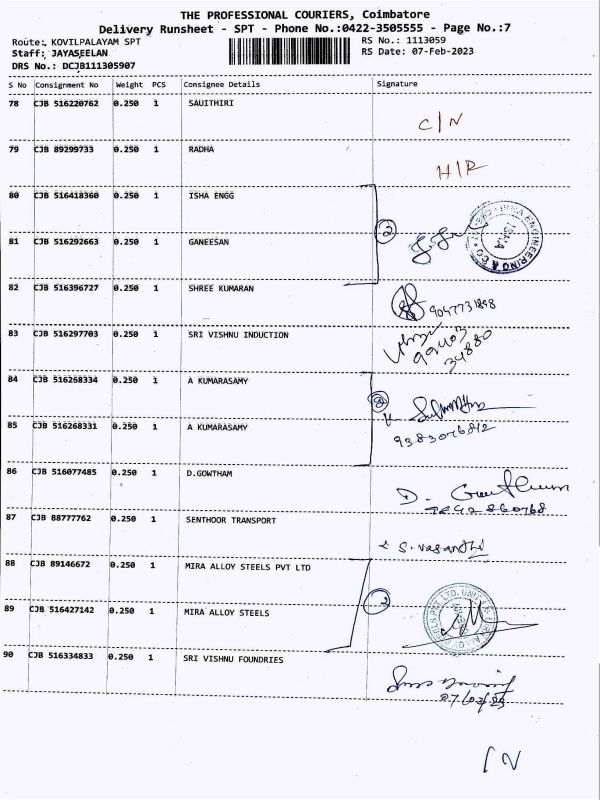 THE PROFESSIONAL COURIERS, Coimbatore
Delivery Runsheet - SPT - Phone No.:0422-3505555 - Page No.:7
Route: KOVILPALAYAM SPT RS No.: 1113059
Staff: JAYASEELAN RS Date: 07-Feb-2023
DRS No.: DCJB111305907
S No Consignment No Weight PCS Consignee Details Signature
78 CJB 516220762 0.250 1 SAUITHIRI
C/N
79 CJB 89299733 0.250 1 RADHA
H/R
80 CJB 516418360 0.250 1 ISHA ENGG
2
81 CJB 516292663 0.250 1 GANEESAN
82 CJB 516396727 0.250 1 SHREE KUMARAN
9047731898
83 CJB 516297703 0.250 1 SRI VISHNU INDUCTION
99403
34880
84 CJB 516268334 0.250 1 A KUMARASAMY
85 CJB 516268331 0.250 1 A KUMARASAMY
9383076812
86 CJB 516077485 0.250 1 D.GOWTHAM
D.
87 CJB 88777762 0.250 1 SENTHOOR TRANSPORT
S. Vasanthi
88 CJB 89146672 0.250 1 MIRA ALLOY STEELS PVT LTD
2
89 CJB 516427142 0.250 1 MIRA ALLOY STEELS
90 CJB 516334833 0.250 1 SRI VISHNU FOUNDRIES